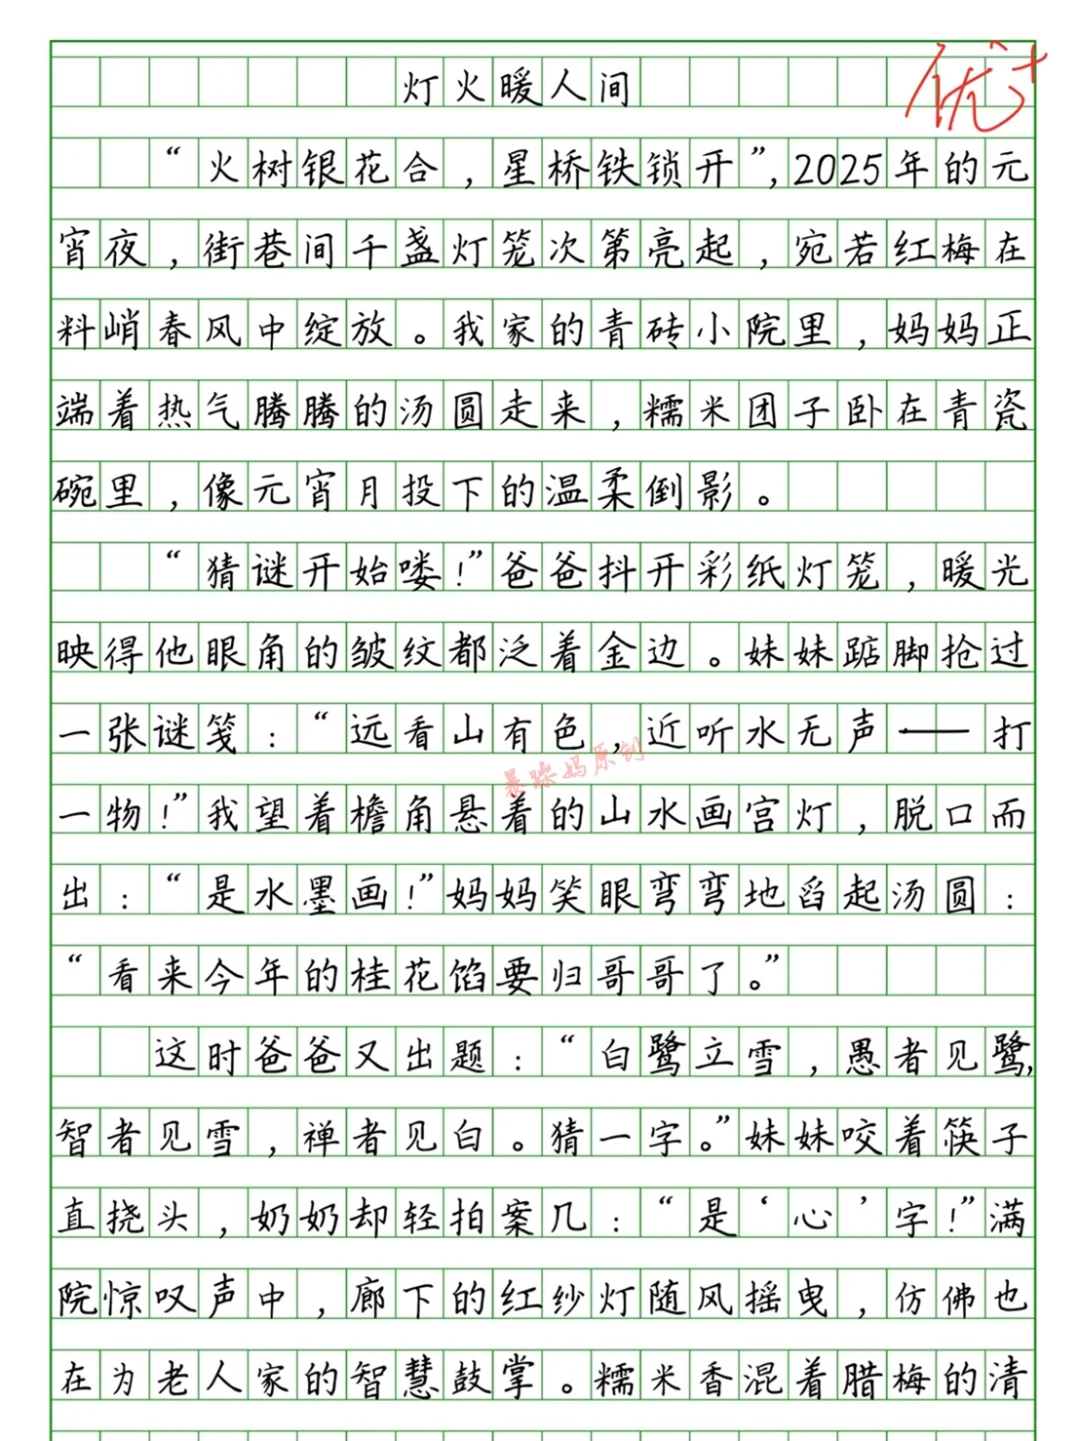 灯火暖人间
优+
“火树银花合，星桥铁锁开”，2025年的元
宵夜，街巷间千盏灯笼次第亮起，宛若红梅在
料峭春风中绽放。我家的青砖小院里，妈妈正
端着热气腾腾的汤圆走来，糯米团子卧在青瓷
碗里，像元宵月投下的温柔倒影。
“猜谜开始喽！”爸爸抖开彩纸灯笼，暖光
映得他眼角的皱纹都泛着金边。妹妹踮脚抢过
一张谜笺：“远看山有色，近听水无声——打
一物！”我望着檐角悬着的山水画宫灯，脱口而
出：“是水墨画！”妈妈笑眼弯弯地舀起汤圆：
“看来今年的桂花馅要归哥哥了。”
这时爸爸又出题：“白鹭立雪，愚者见鹭，
智者见雪，禅者见白。猜一字。”妹妹咬着筷子
直挠头，奶奶却轻拍案几：“是‘心’字！”满
院惊叹声中，廊下的红纱灯随风摇曳，仿佛也
在为老人家的智慧鼓掌。糯米香混着腊梅的清
暴躁妈原创